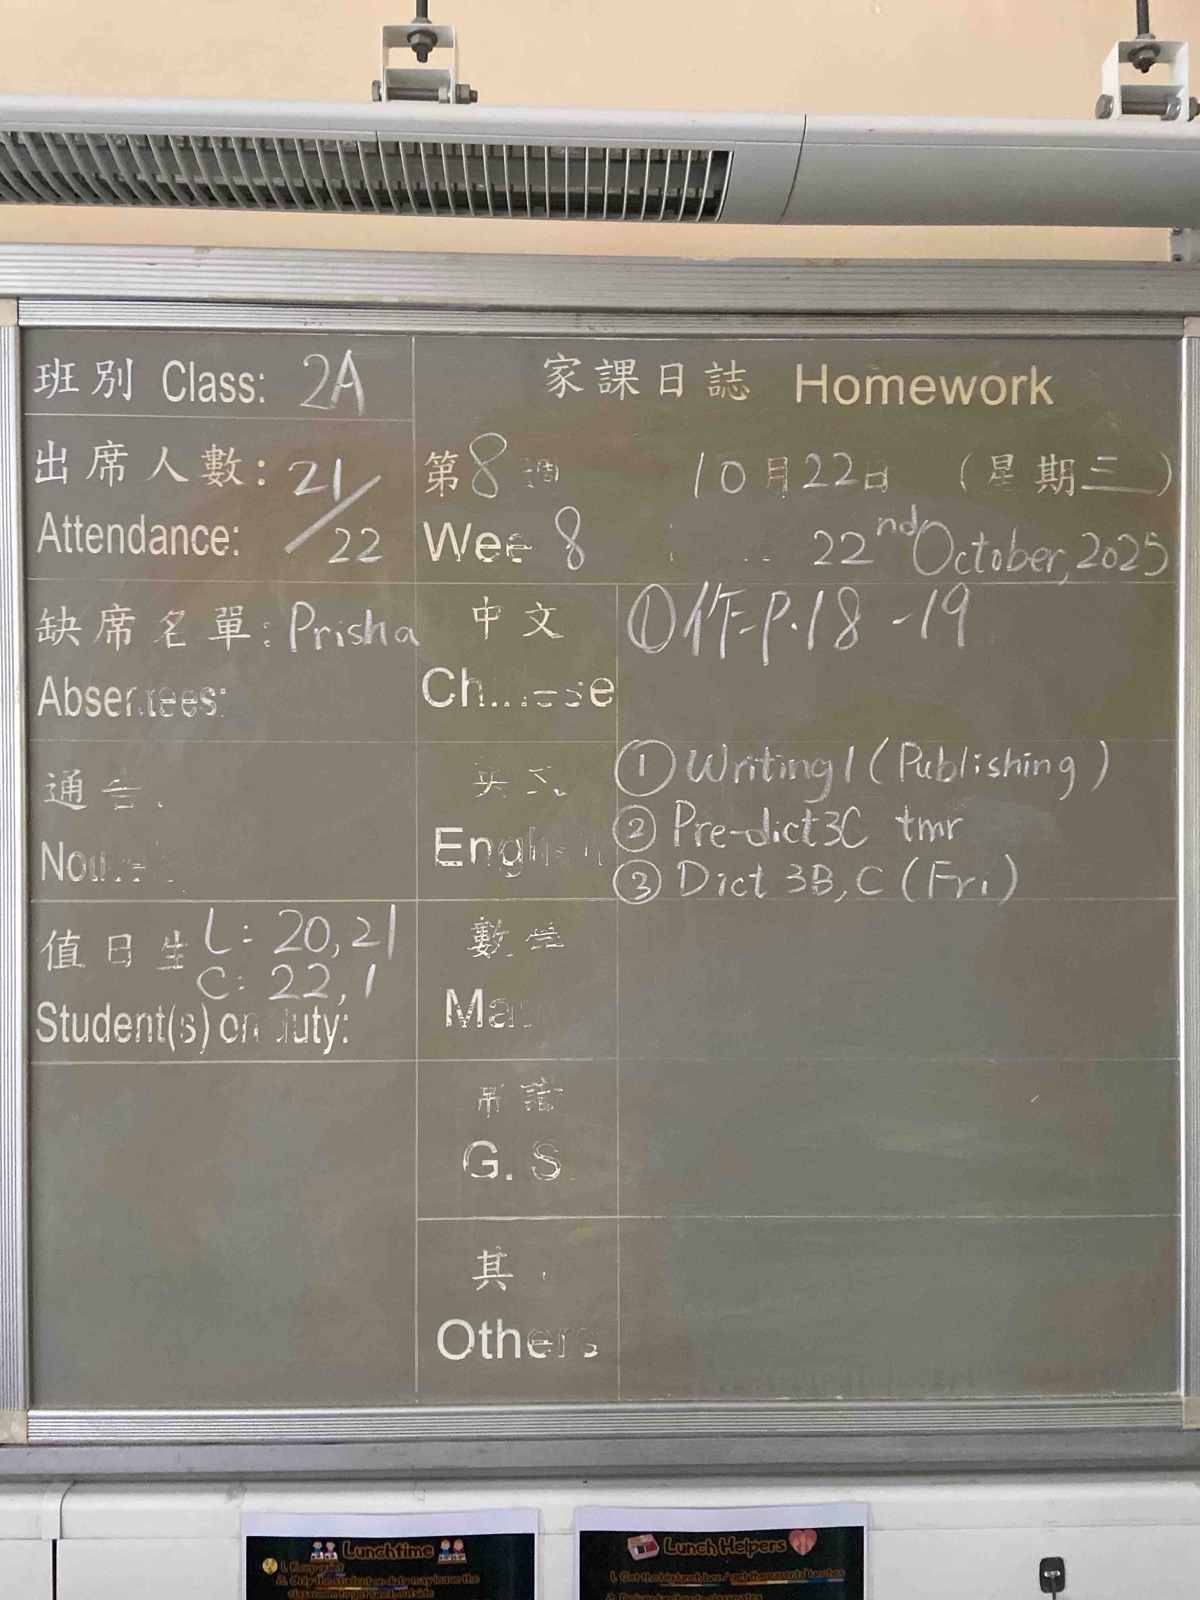 班別 Class: 2A
出席人數: 21/22
Attendance:
缺席名單: Prisha
Absentees:
通告
值日生 L: 20,21
C: 22,1
Student(s) on duty:
家課日誌 Homework
第8週 10月22日 (星期三)
Week 8 22nd October, 2025
中文
Chinese
①作P.18-19
英文
English
① Writing 1 (Publishing)
② Pre-dict 3C tmr
③ Dict 3B, C (Fri)
數學
Ma
常識
G. S.
其
Others
Lunchtime
1. Keep quiet
2. Only the student on duty may leave the
classroom to get lunch outside
Lunch Helpers
1. Get the big lunch box / get the parental lunches